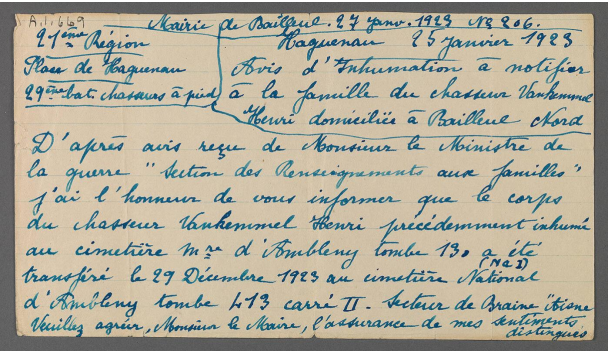 A.1.669
Mairie de Bailleul. 27 janv. 1923 No 206.
21ème Région
Place de Haguenau
29ème bat. chasseurs à pied
Haguenau 25 janvier 1923
Avis d'Inhumation à notifier
à la famille du chasseur Vankemmel
Henri domiciliée à Bailleul Nord
D'après avis reçu de Monsieur le Ministre de
la guerre "Section des Renseignements aux familles"
j'ai l'honneur de vous informer que le corps
du chasseur Vankemmel Henri précédemment inhumé
au cimetière mre d'Ambleny tombe 130 a été
(No I)
transféré le 29 Décembre 1923 au cimetière National
d'Ambleny tombe 413 carré II. Secteur de Braine Aisne
Veuillez agréer, Monsieur le Maire, l'assurance de mes sentiments
distingués